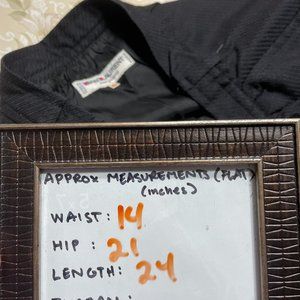 APPROX MEASUREMENTS (FLAT)
(inches)
WAIST: 14
HIP : 21
LENGTH: 24